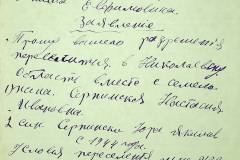 Евграмовна.
Заявление
Прошу вашего разрешения
переселиться в Николаевскую
область вместе с семьей
мужа. Серпинская Настасия
Ивановна
2 сын Серпински Юра
с 1944 года.
Условия переселения